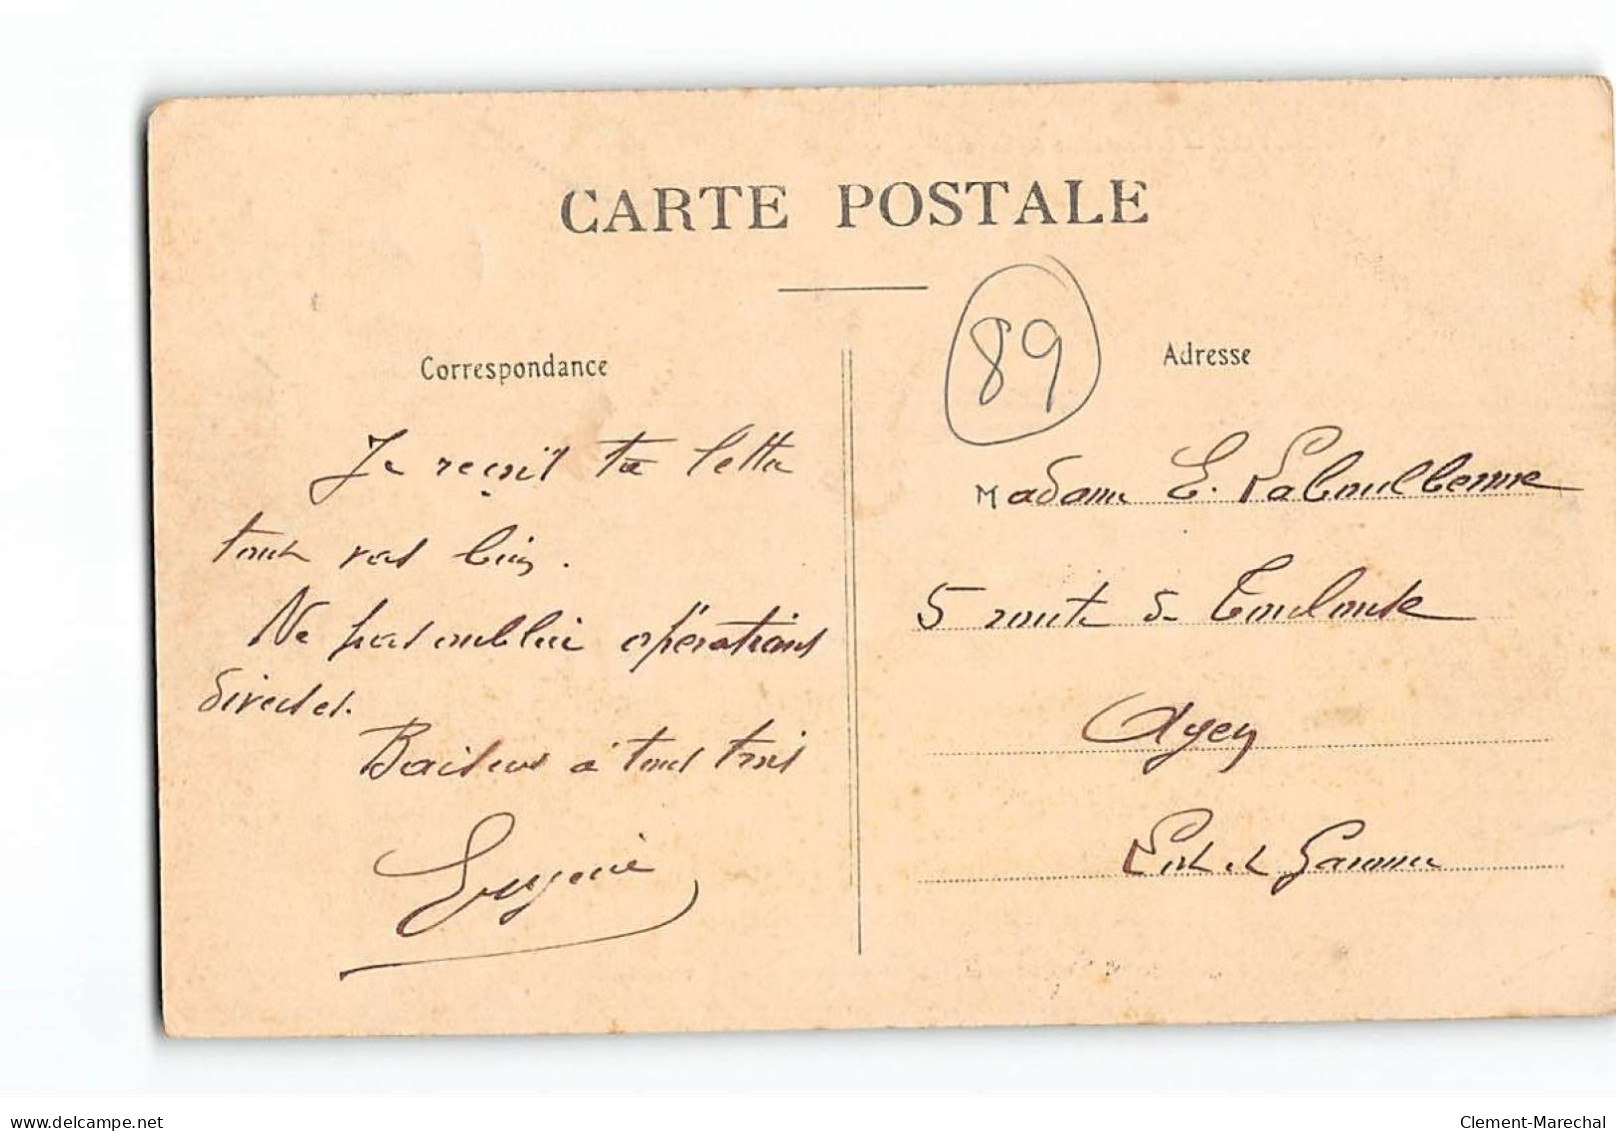 CARTE POSTALE
89
Correspondance
Je reçoit ta lettre
tout vas bien.
Ne pas oublier opérations
directes.
Baiser à tous trois
Eugénie
Adresse
Madame E. Laboulbenne
5 route de Toulouse
Agen
Lot et Garonne
www.delcampe.net
Clement-Marechal